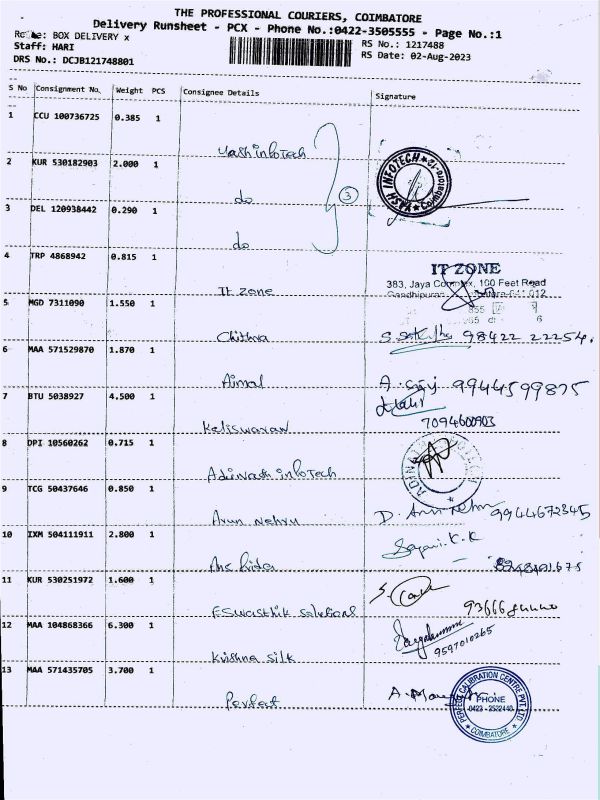 THE PROFESSIONAL COURIERS, COIMBATORE
Delivery Runsheet - PCX - Phone No.:0422-3505555 - Page No.:1
BOX DELIVERY x
RS No.: 1217488
Staff: HARI
RS Date: 02-Aug-2023
DRS No.: DCJB121748801
S No Consignment No. Weight PCS Consignee Details Signature
1 CCU 100736725 0.385 1
Yash infoTech
2 KUR 530182903 2.000 1
do
3
YASH INFOTECH Coimbatore-12
3 DEL 120938442 0.290 1
do
4 TRP 4868942 0.815 1
IT zone
IT ZONE
383, Jaya Complex, 100 Feet Road
5 MGD 7311090 1.550 1
Chithra
98422 22254.
6 MAA 571529870 1.870 1
Ajmal
A. 9944599875
7 BTU 5038927 4.500 1
7094600903
8 DPI 10560262 0.715 1
infoTech
9 TCG 50437646 0.850 1
Arun Nehru
D. Arun Nehru 9944672345
10 IXM 504111911 2.800 1
11 KUR 530251972 1.600 1
ESwasthik Solutions
12 MAA 104868366 6.300 1
Krishna Silk
9597010265
13 MAA 571435705 3.700 1
Perfect
PERFECT CALIBRATION CENTRE PVT. LTD
PHONE
0423 - 2522440
COIMBATORE